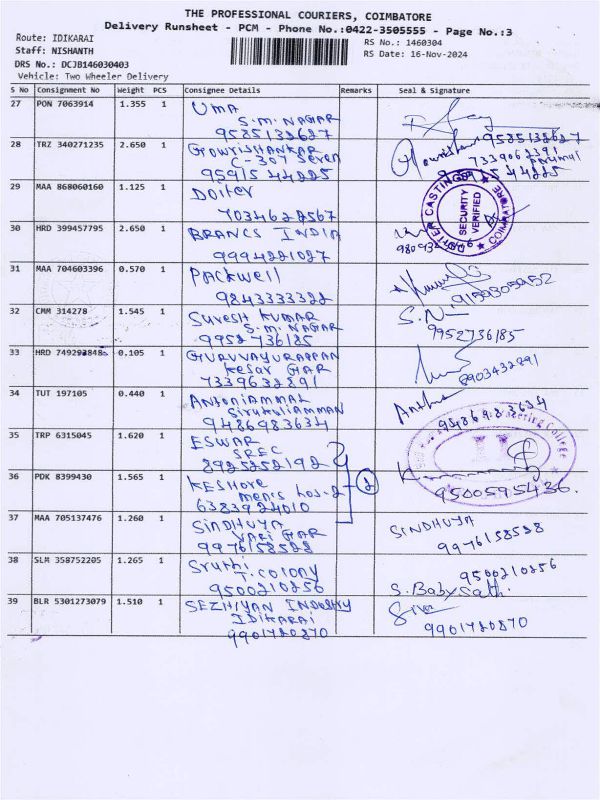 THE PROFESSIONAL COURIERS, COIMBATORE
Delivery Runsheet - PCM - Phone No.:0422-3505555 - Page No.:3
Route: IDIKARAI
RS No.: 1460304
Staff: NISHANTH
RS Date: 16-Nov-2024
DRS No.: DCJB146030403
Vehicle: Two Wheeler Delivery
S No Consignment No Weight PCS Consignee Details Remarks Seal & Signature
27 PON 7063914 1.355 1 UMA
S.M. NAGAR
9585132627
28 TRZ 340271235 2.650 1 GOWRISHANKAR 9585132627
C-307 Seven 7339062391
9591544225
29 MAA 868060160 1.125 1 Doiter
7034622567
SECURITY VERIFIED
COIMBATORE
30 HRD 399457795 2.650 1 BRANCS INDIA
9994221027
31 MAA 704603396 0.570 1 Packwell
9843333322 9159305952
32 CMM 314278 1.545 1 Suresh KUMAR S.N.
S.M. NAGAR
9952736185 9952736185
33 HRD 749293848 0.105 1 GURUVAYURAPPAN
Kesar GAR
7339632891 8903432891
34 TUT 197105 0.440 1 Antoniammal
Sirukuliamman
9486983634 9486983634
35 TRP 6315045 1.620 1 ESWAR
SREC
8925252192
36 PDK 8399430 1.565 1 KESHORE
mens hos-2 2
6383924010 9500595436.
37 MAA 705137476 1.260 1 SINDHUYA SINDHUYA
VARI GAR
9976158528 9976158528
38 SLM 358752205 1.265 1 Sruthi 9500210256
T. colony
9500210256 S. Babysathi
39 BLR 5301273079 1.510 1 SEZHIYAN Industry Siva
IDIKARAI
9901720870 9901720870